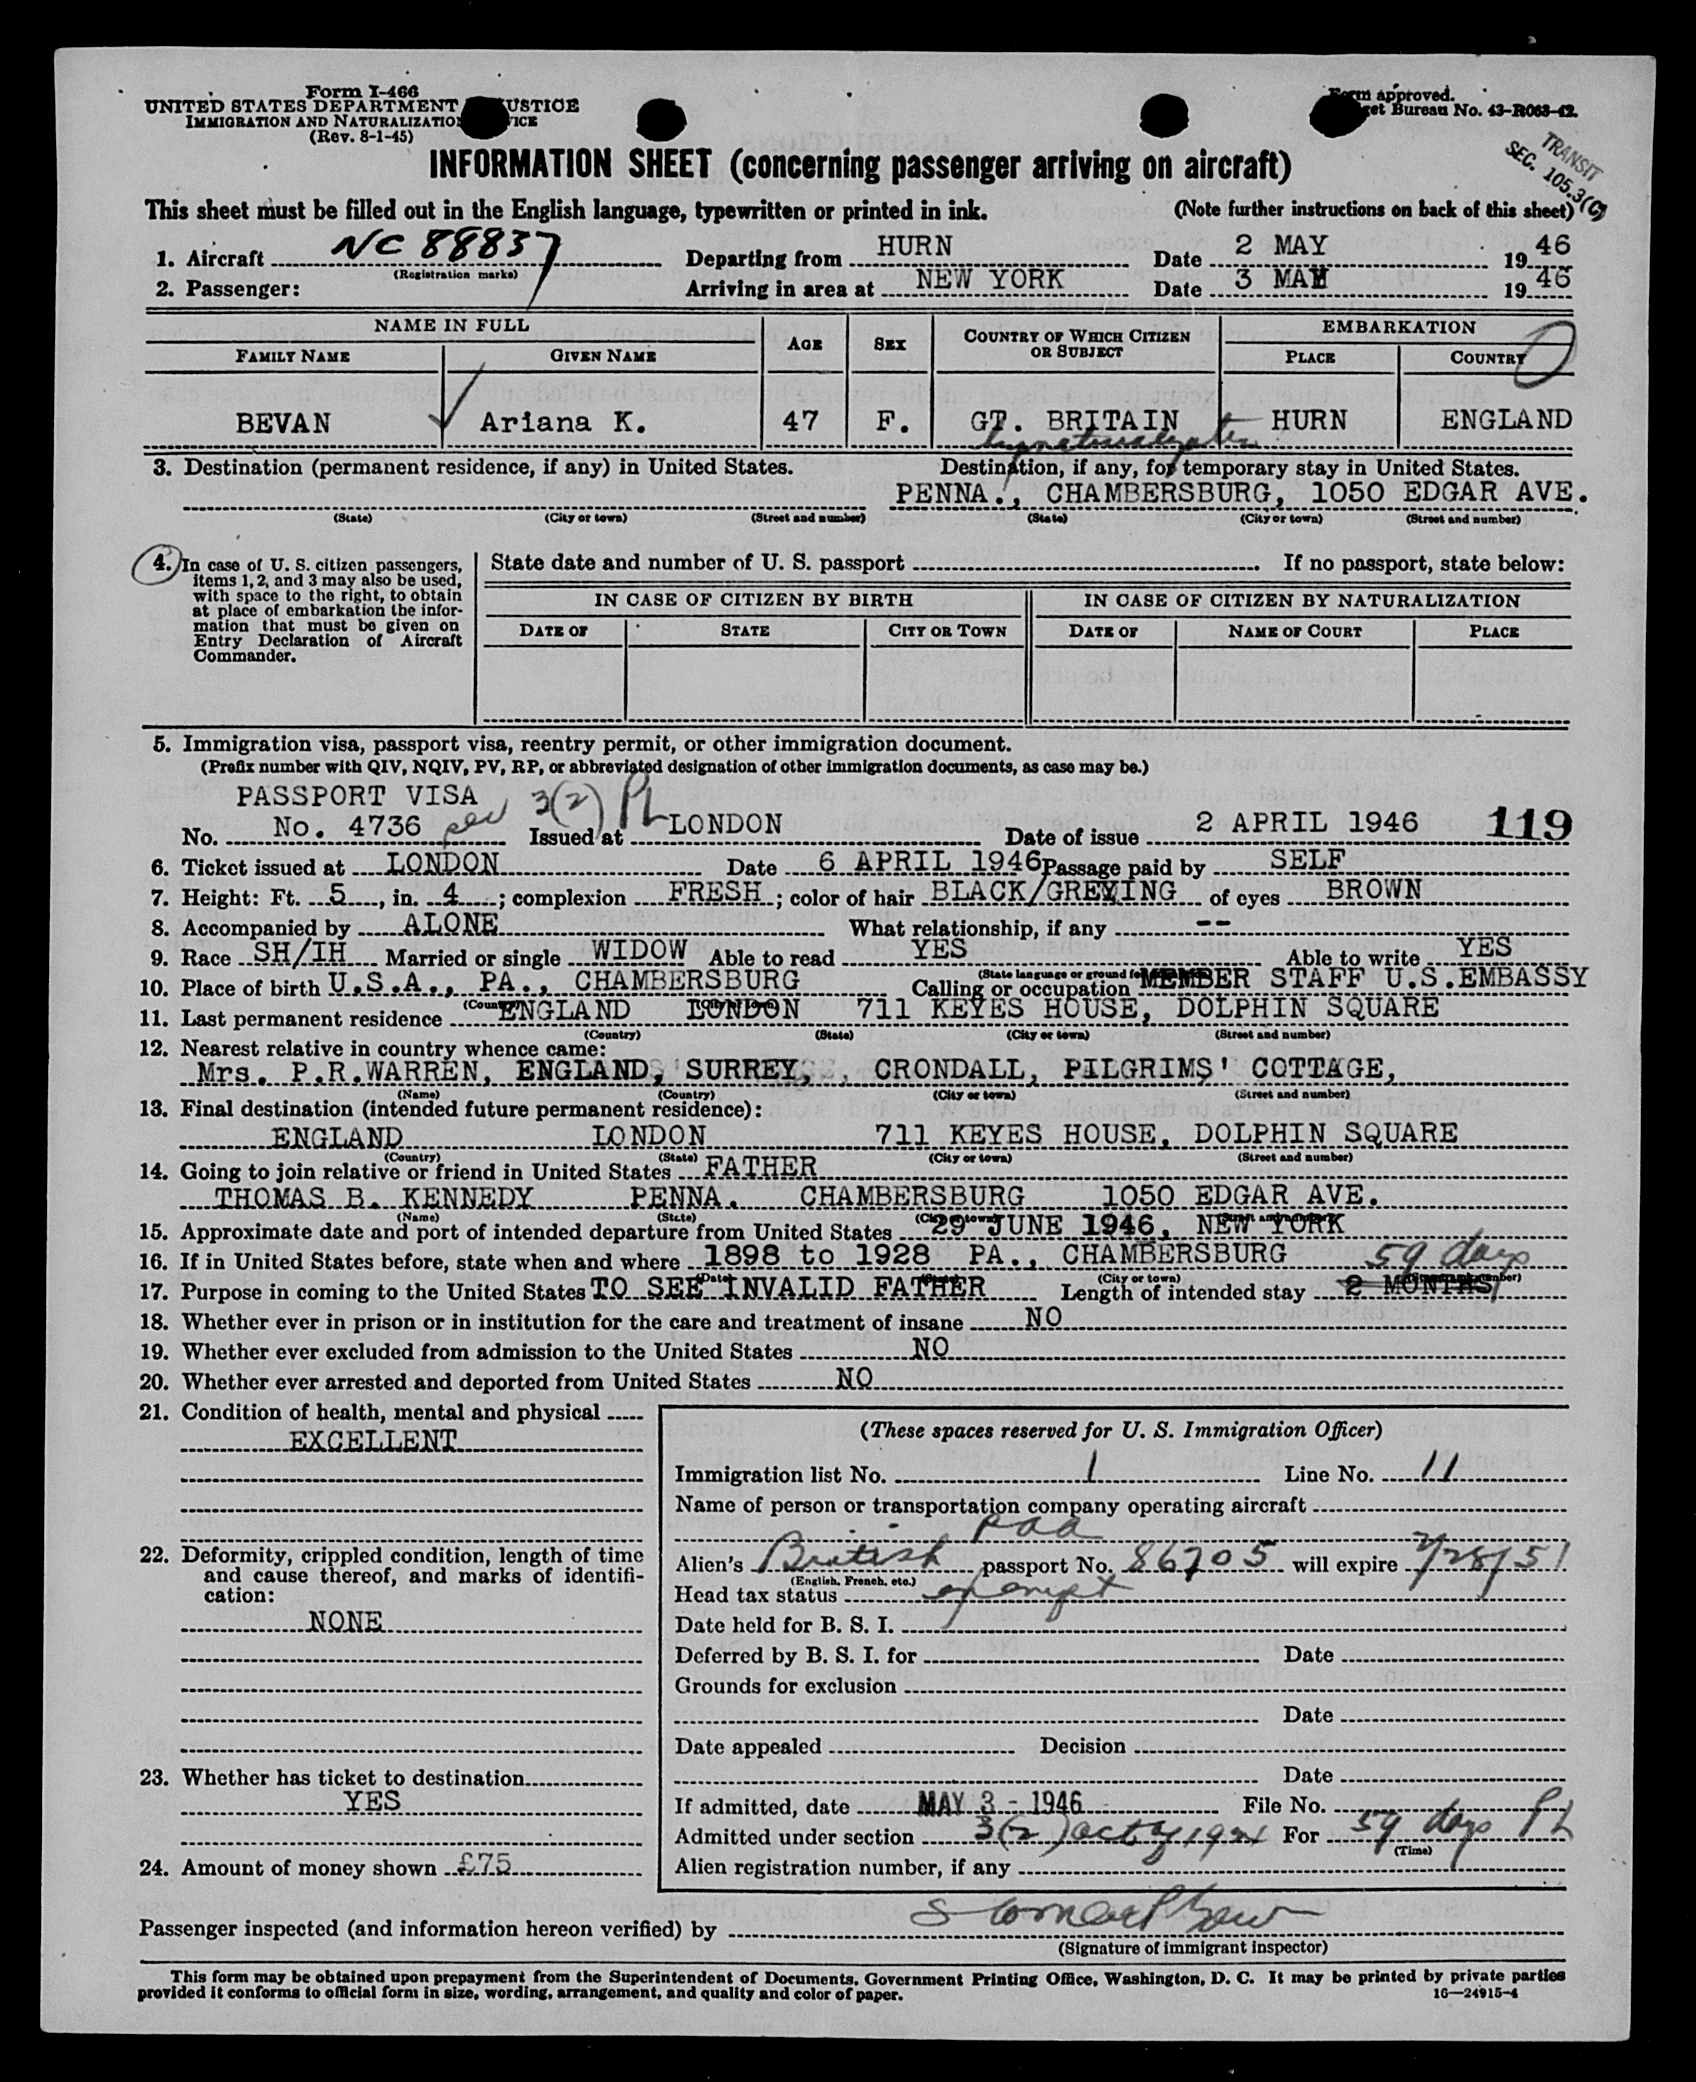 Form I-466
UNITED STATES DEPARTMENT USTICE
IMMIGRATION AND NATURALIZATIO ICE
(Rev. 8-1-45)
approved.
et Bureau No. 43-R063-42.
TRANSIT
SEC. 105.3(C)
INFORMATION SHEET (concerning passenger arriving on aircraft)
This sheet must be filled out in the English language, typewritten or printed in ink. (Note further instructions on back of this sheet)
1. Aircraft NC 88837 Departing from HURN Date 2 MAY 1946
(Registration marks)
2. Passenger: Arriving in area at NEW YORK Date 3 MAY 1946
NAME IN FULL AGE SEX COUNTRY OF WHICH CITIZEN OR SUBJECT EMBARKATION
FAMILY NAME GIVEN NAME PLACE COUNTRY
BEVAN Ariana K. 47 F. GT. BRITAIN HURN ENGLAND
by naturalization
3. Destination (permanent residence, if any) in United States. Destination, if any, for temporary stay in United States.
PENNA., CHAMBERSBURG, 1050 EDGAR AVE.
(State) (City or town) (Street and number) (State) (City or town) (Street and number)
4. In case of U. S. citizen passengers, items 1, 2, and 3 may also be used, with space to the right, to obtain at place of embarkation the information that must be given on Entry Declaration of Aircraft Commander.
State date and number of U. S. passport If no passport, state below:
IN CASE OF CITIZEN BY BIRTH IN CASE OF CITIZEN BY NATURALIZATION
DATE OF STATE CITY OR TOWN DATE OF NAME OF COURT PLACE
5. Immigration visa, passport visa, reentry permit, or other immigration document.
(Prefix number with QIV, NQIV, PV, RP, or abbreviated designation of other immigration documents, as case may be.)
PASSPORT VISA 3(2) PL
No. No. 4736 Issued at LONDON Date of issue 2 APRIL 1946 119
6. Ticket issued at LONDON Date 6 APRIL 1946 Passage paid by SELF
7. Height: Ft. 5, in. 4; complexion FRESH; color of hair BLACK/GREYING of eyes BROWN
8. Accompanied by ALONE What relationship, if any --
9. Race SH/IH Married or single WIDOW Able to read YES Able to write YES
10. Place of birth U.S.A., PA., CHAMBERSBURG Calling or occupation MEMBER STAFF U.S.EMBASSY
11. Last permanent residence ENGLAND LONDON 711 KEYES HOUSE, DOLPHIN SQUARE
(Country) (State) (City or town) (Street and number)
12. Nearest relative in country whence came:
Mrs. P.R.WARREN, ENGLAND, SURREY, CRONDALL, PILGRIMS' COTTAGE,
(Name) (Country) (City or town) (Street and number)
13. Final destination (intended future permanent residence):
ENGLAND LONDON 711 KEYES HOUSE, DOLPHIN SQUARE
(Country) (State) (City or town) (Street and number)
14. Going to join relative or friend in United States FATHER
THOMAS B. KENNEDY PENNA. CHAMBERSBURG 1050 EDGAR AVE.
(Name) (State)
15. Approximate date and port of intended departure from United States 29 JUNE 1946, NEW YORK
16. If in United States before, state when and where 1898 to 1928 PA., CHAMBERSBURG
(Date) (City or town)
59 days
17. Purpose in coming to the United States TO SEE INVALID FATHER Length of intended stay 2 MONTHS
18. Whether ever in prison or in institution for the care and treatment of insane NO
19. Whether ever excluded from admission to the United States NO
20. Whether ever arrested and deported from United States NO
21. Condition of health, mental and physical
EXCELLENT
22. Deformity, crippled condition, length of time and cause thereof, and marks of identification:
NONE
23. Whether has ticket to destination
YES
24. Amount of money shown £75
(These spaces reserved for U. S. Immigration Officer)
Immigration list No. 1 Line No. 11
Name of person or transportation company operating aircraft
PAA
Alien's British passport No. 86705 will expire 2/28/51
(English, French, etc.)
Head tax status exempt
Date held for B. S. I.
Deferred by B. S. I. for Date
Grounds for exclusion
Date
Date appealed Decision
Date
If admitted, date MAY 3 - 1946 File No.
Admitted under section 3(2) act of 1924 For 59 days PL
(Time)
Alien registration number, if any
Passenger inspected (and information hereon verified) by
(Signature of immigrant inspector)
This form may be obtained upon prepayment from the Superintendent of Documents, Government Printing Office, Washington, D. C. It may be printed by private parties
provided it conforms to official form in size, wording, arrangement, and quality and color of paper. 16—24915-4